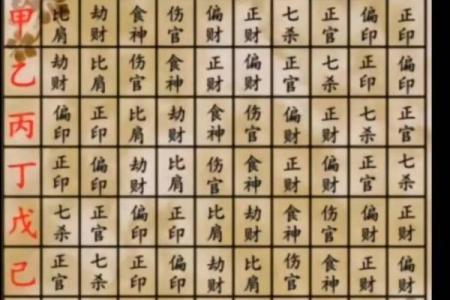 甲 比肩 劫财 食神 伤官 偏财 正财 七杀 正官 偏印 正印
乙 劫财 比肩 伤官 食神 正财 偏财 正官 七杀 正印 偏印
丙 偏印 正印 比肩 劫财 食神 伤官 偏财 正财 七杀 正官
丁 正印 偏印 劫财 比肩 伤官 食神 正财 偏财 正官 七杀
戊 七杀 正官 偏印 正印 比肩 劫财 食神 伤官 偏财 正财
己 正官 七杀 正印 偏印 劫财 比肩 伤官 食神 正财 偏财